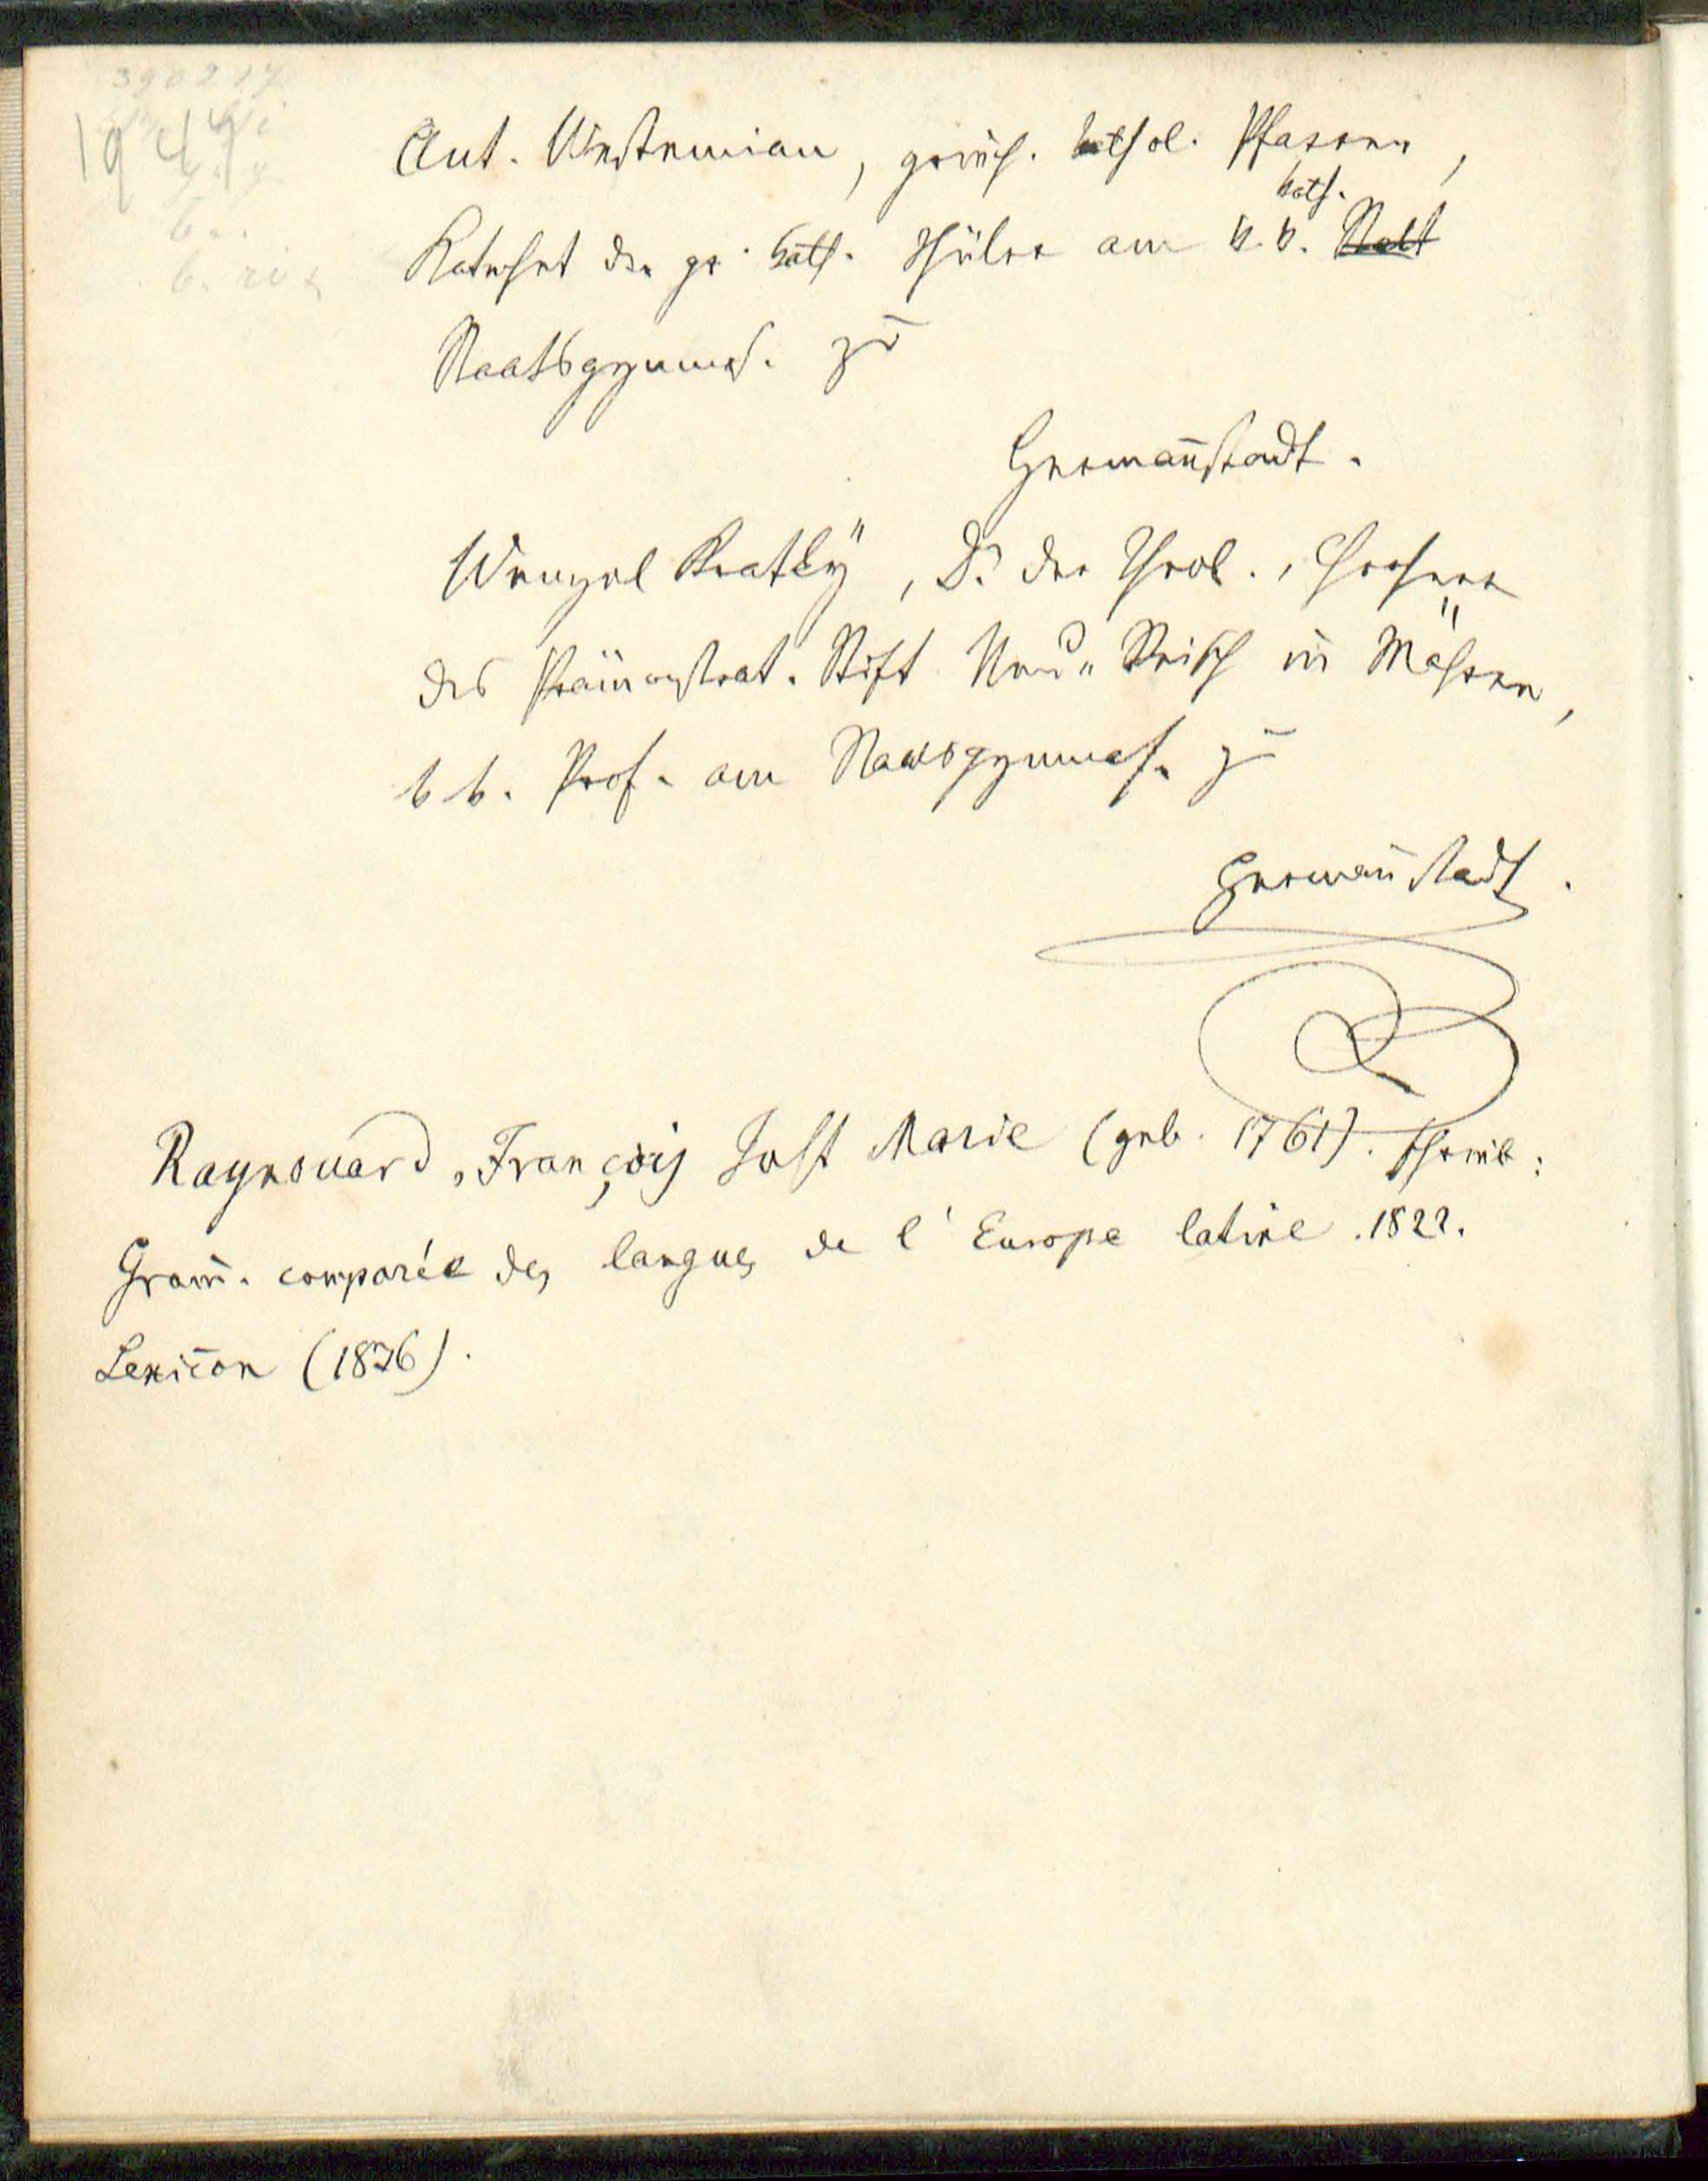 1947
Ant. Vestemian, griech. kathol. Pfarrer,
Katechet der gr. kath. Schüler am k. k. kath. Staat
Staatsgymnas. zu
Hermanstadt.
Wenzel Kratky, Dr. der Theol., Chorherr
des Prämonstrat. Stift Neu-Reisch in Mähren,
k k. Prof. am Staatsgymnas. zu
Hermanstadt.
Raynouard, François Just Marie (geb. 1761). schrieb:
Gram. comparée des langues de l'Europe latine. 1822.
Lexicon (1836).